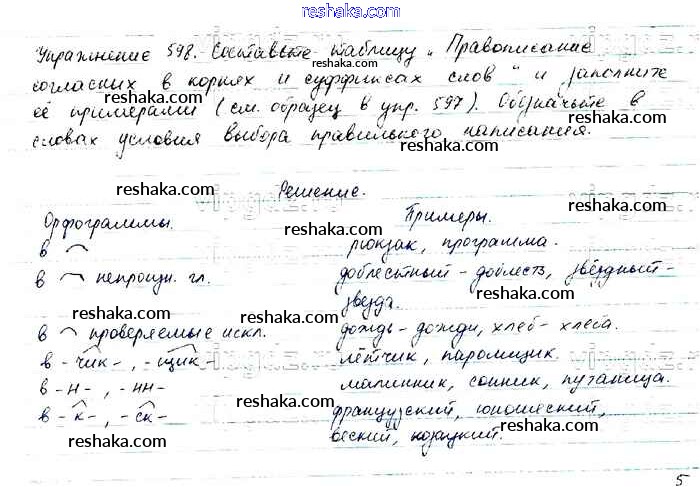 reshaka.com
Упражнение 598. Составьте таблицу „Правописание
согласных в корнях и суффиксах слов" и заполните
reshaka.com reshaka.com
её примерами (см. образец в упр. 597). Обозначьте в
словах условия выбора правильного написания.
reshaka.com
reshaka.com Решение.
reshaka.com
Орфограммы. Примеры.
в рюкзак, программа.
reshaka.com
в непроизн. гл. доблестный - доблесть, звёздный -
звезда.
reshaka.com
reshaka.com
в проверяемые искл. дождь - дожди, хлеб - хлеба.
reshaka.com
в -чик-, -щик- лётчик, паромщик.
reshaka.com
в -н-, -нн- малинник, сонник, путаница.
reshaka.com
в -к-, -ск- французский, юношеский,
reshaka.com
веский,
reshaka.com
5